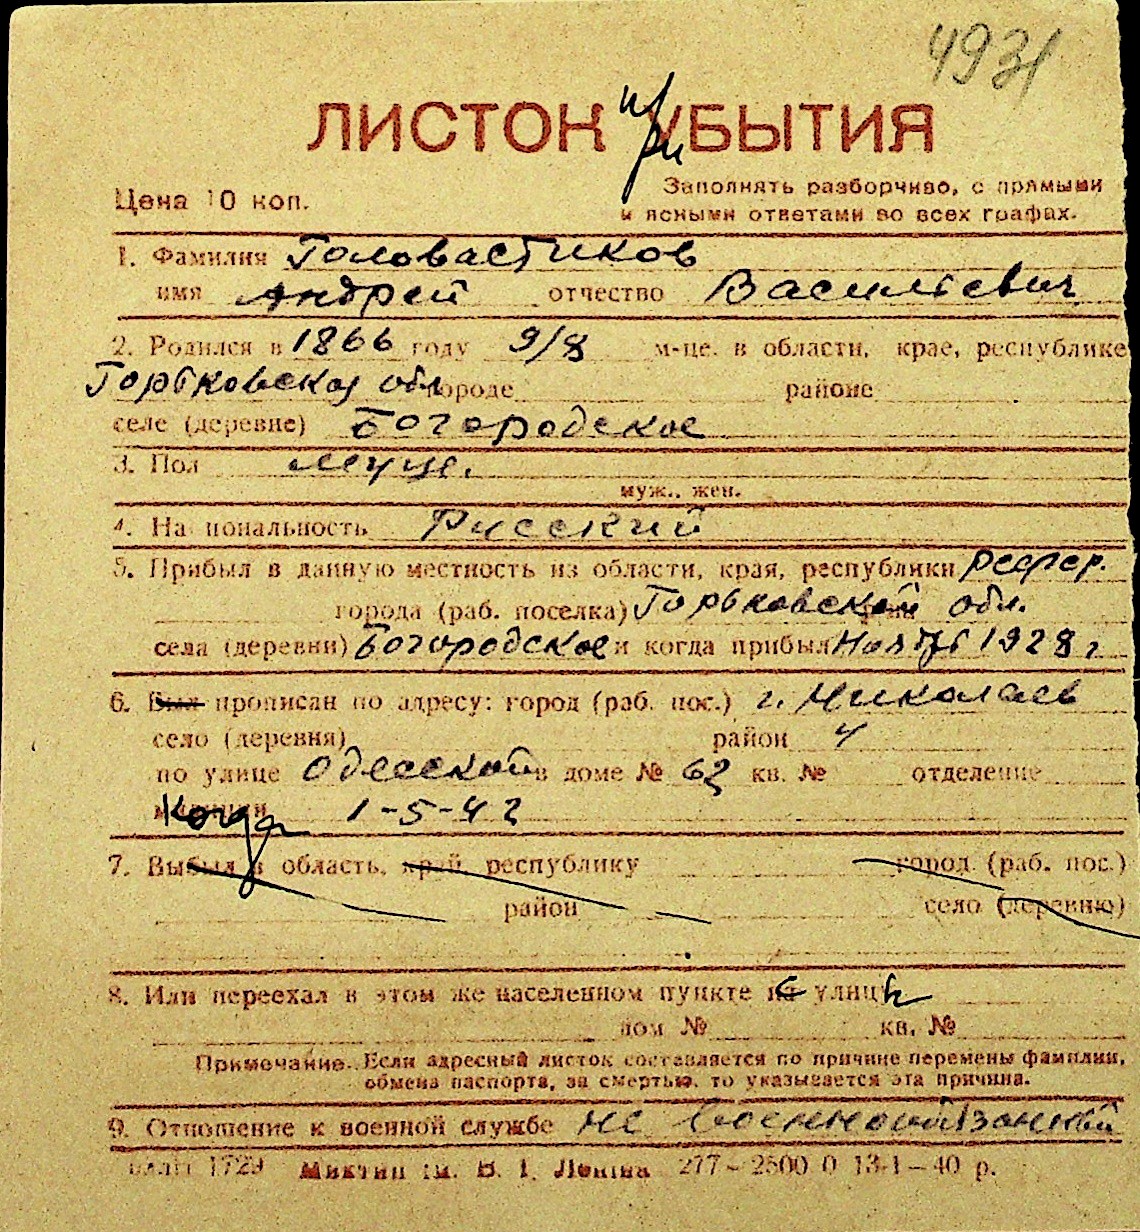 4931
ЛИСТОК при УБЫТИЯ
Цена 10 коп.
Заполнять разборчиво, с прямыми
и ясными ответами во всех графах.
1. Фамилия Головастиков
имя Андрей отчество Васильевич
2. Родился в 1866 году 9/8 м-це. в области, крае, республике
Горьковская обл городе районе
селе (деревне) Богородское
3. Пол мужс.
муж., жен.
4. На иональность Русский
5. Прибыл в данную местность из области, края, республики
города (раб. поселка) Горьковской обл.
села (деревни) Богородское и когда прибыл Ноябрь 1928 г
6. Был прописан по адресу: город (раб. пос.) г. Николаев
село (деревня) район 4
по улице Одесской в доме № 62 кв. № отделение
милиции Когда 1-5-42
7. Выбыл в область, край, республику город (раб. пос.)
район село (деревню)
8. Или переехал в этом же населенном пункте с улицы
дом № кв. №
Примечание. Если адресный листок составляется по причине перемены фамилии,
обмена паспорта, за смертью, то указывается эта причина.
9. Отношение к военной службе не военнообязанный
1729 Миктип ім. В. І. Леніна 277–2500 0 13-1–40 р.